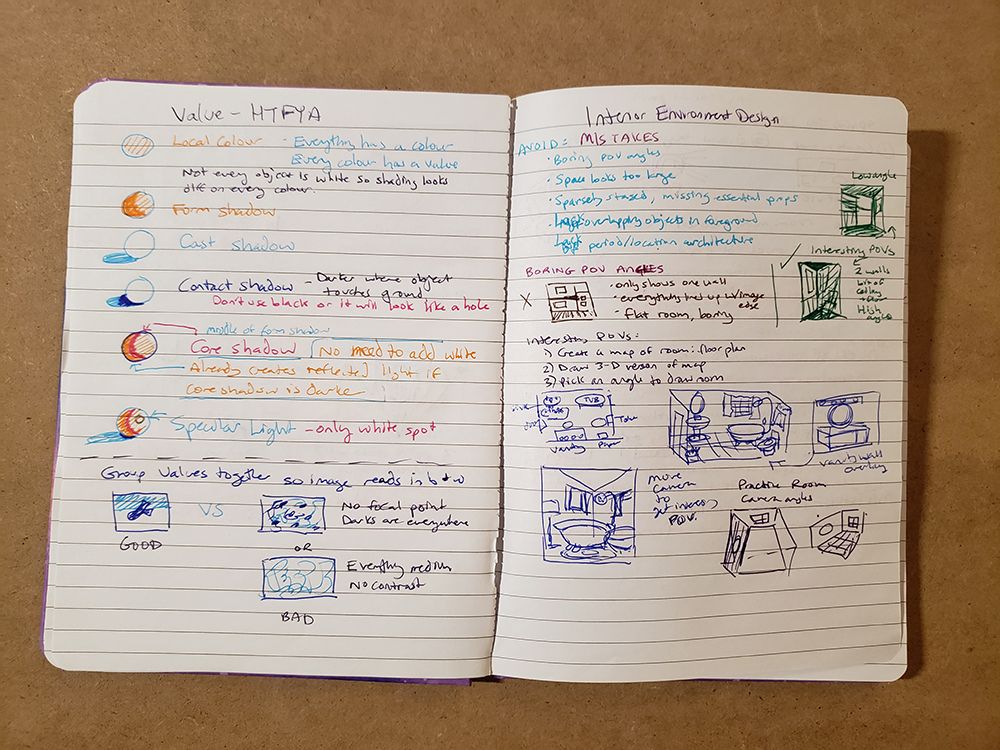 Value - HTFYA
Local Colour - Everything has a colour
Every colour has a value
Not every object is white so shading looks
diff on every colour.
Form shadow
Cast shadow
Contact shadow - Darker where object
touches ground
Don't use black or it will look like a hole
middle of form shadow
Core shadow No need to add white
Already creates reflected light if
core shadow is darker
Specular Light - only white spot
Group Values together so image reads in b + w
VS
No focal point
Darks are everywhere
GOOD
OR
Everything medium
No contrast
BAD
Interior Environment Design
AVOID: MISTAKES
· Boring POV angles
· Space looks too large
· Sparsely staged, missing essential props
· Lack overlapping objects in foreground
· Lack period/location architecture
Low angle
Interesting POVs
2 walls
bit of
ceiling
+ floor
High
angle
BORING POV ANGLES
X
· only shows one wall
· everything lined up w/image
edge
· flat room, boring
Interesting POVs:
1) Create a map of room: floor plan
2) Draw 3-D version of map
3) Pick an angle to draw room
TUB
Vanity
Vanity wall
overlay
move
camera
to
get interesting
POV.
Practice Room
Camera angles